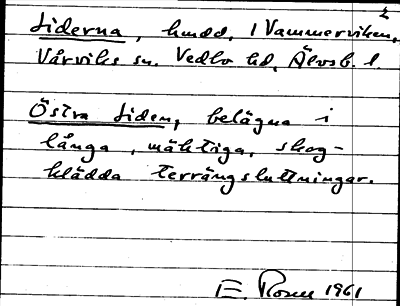 Liderna, hmdd, 1 Vammerviken,
Vårviks sn. Vedbo hd, Älvsb. l.
Östra Liden, belägna i
långa, mäktiga, skog-
klädda terrängsluttningar.
E. Rosell 1961